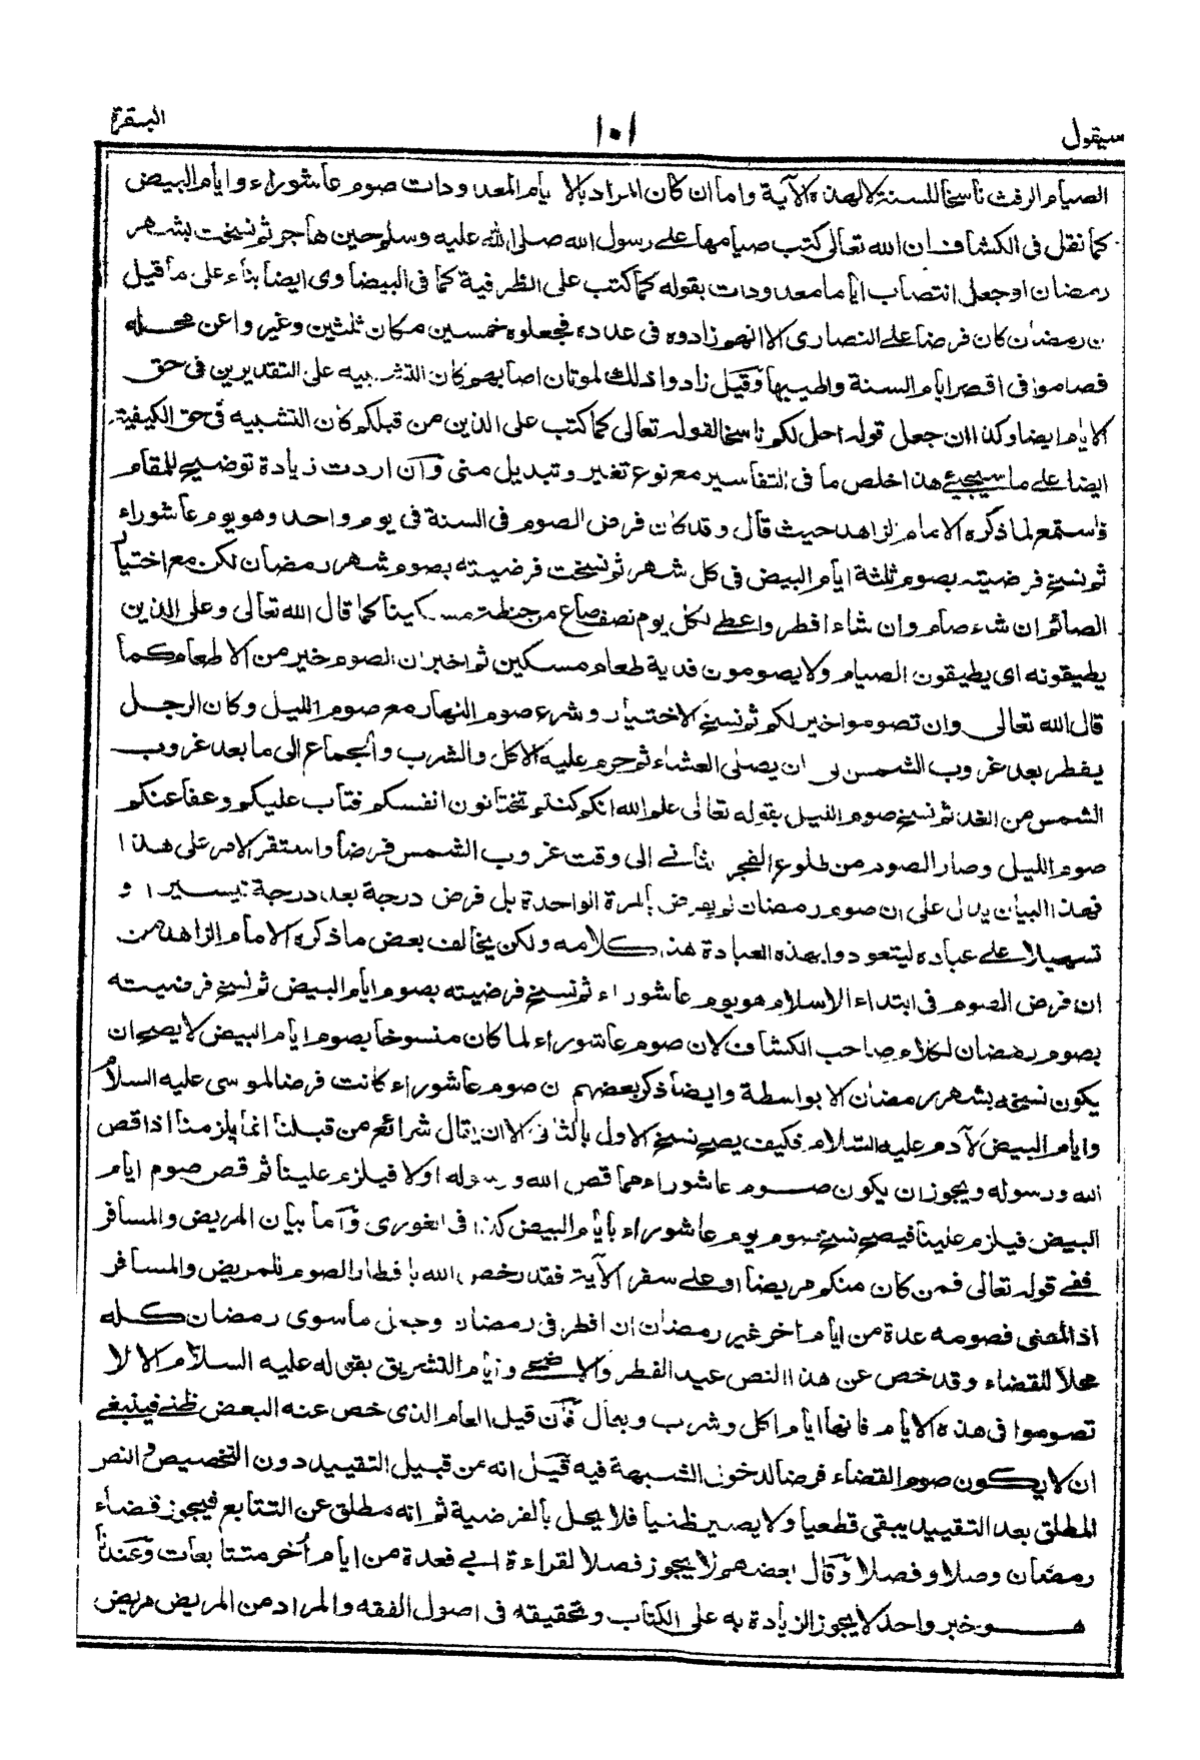 سيقول ١٠١ البقرة
الصيام الرفث ناسخا للسنة لا لهذه الآية واما ان كان المراد بالا يام المعدودات صوم عاشوراء وايام البيض
كما نقل فى الكشاف ان الله تعالى كتب صيامها على رسول الله صلى الله عليه وسلم حين هاجر ثم نسخت بشهر
رمضان او جعل انتصاب اياما معدودات بقوله كما كتب على الظرفية كما فى البيضاوى ايضا بناء على ما قيل
ن رمضان كان فرضا على النصارى الا انهم زادوه فى عدده فجعلوه خمسين مكان ثلثين وغيروا عن محله
فصاموا فى اقصر ايام السنة واطيبها وقيل زادوا ذلك لموتان اصابهم كان التشبيه على التقديرين فى حق
الايام ايضا وكذا ان جعل قوله احل لكم ناسخا لقوله تعالى كما كتب على الذين من قبلكم كان التشبيه فى حق الكيفية
ايضا على ما سيجئ هذا اخلص ما فى التفاسير مع نوع تغير وتبديل منى وان اردت زيادة توضيح للمقام
فاستمع لما ذكره الامام الزاهد حيث قال وقد كان فرض الصوم فى السنة فى يوم واحد وهو يوم عاشوراء
ثم نسخ فرضيته بصوم ثلثة ايام البيض فى كل شهر ثم نسخت فرضيته بصوم شهر رمضان لكن مع اختيار
الصائم ان شاء صام وان شاء افطر واعطى لكل يوم نصف صاع من حنطة مسكينا كما قال الله تعالى وعلى الذين
يطيقونه اى يطيقون الصيام ولا يصومون فدية طعام مسكين ثم اخبر ان الصوم خير من الاطعام كما
قال الله تعالى وان تصوموا خير لكم ثم نسخ الاختيار وشرع صوم النهار مع صوم الليل وكان الرجل
يفطر بعد غروب الشمس لى ان يصلى العشاء ثم حرم عليه الاكل والشرب والجماع الى ما بعد غروب
الشمس من الغد ثم نسخ صوم الليل بقوله تعالى علم الله انكم كنتم تختانون انفسكم فتاب عليكم وعفا عنكم
صوم الليل وصار الصوم من طلوع الفجر الثانى الى وقت غروب الشمس فرضا واستقر الامر على هذا
فهذا البيان يدل على ان صوم رمضان لم يفرض بالمرة الواحدة بل فرض درجة بعد درجة تيسيرا و
تسهيلا على عباده ليتعودوا بهذه العبادة هذا كلامه ولكن يخالف بعض ما ذكره الامام الزاهد من
ان فرض الصوم فى ابتداء الاسلام هو يوم عاشوراء ثم نسخ فرضيته بصوم ايام البيض ثم نسخ فرضيته
بصوم رمضان لكلام صاحب الكشاف لان صوم عاشوراء لما كان منسوخا بصوم ايام البيض لا يصح ان
يكون نسخه بشهر رمضان الا بواسطة وايضا ذكر بعضهم ن صوم عاشوراء كانت فرضا لموسى عليه السلام
وايام البيض لآدم عليه السلام فكيف يصح نسخ الاول بالثانى الا ان يقال شرائع من قبلنا انما يلزمنا اذا قص
الله ورسوله ويجوز ان يكون صوم عاشوراء مما قص الله ورسوله اولا فيلزم علينا ثم قص صوم ايام
البيض فيلزم علينا فيصح نسخ صوم يوم عاشوراء بايام البيض كذا فى الغورى واما بيان المريض والمسافر
ففى قوله تعالى فمن كان منكم مريضا او على سفر الآية فقد رخص الله بافطار الصوم للمريض والمسافر
اذ المعنى فصومه عدة من ايام اخر غير رمضان ان افطر فى رمضان وجعل ما سوى رمضان كله
محلا للقضاء وقد خص عن هذا النص عيد الفطر والاضحى وايام التشريق بقوله عليه السلام الا لا
تصوموا فى هذه الايام فانها ايام اكل وشرب وبعال فان قيل العام الذى خص عنه البعض ظنى فينبغى
ان لا يكون صوم القضاء فرضا لدخول الشبهة فيه قيل انه من قبيل التقييد دون التخصيص والنص
المطلق بعد التقييد يبقى قطعيا ولا يصير ظنيا فلا يحل بالفرضية ثم انه مطلق عن التتابع فيجوز قضاء
رمضان وصلا وفصلا وقال بعضهم لا يجوز فصلا لقراءة ابى فعدة من ايام أخر متتابعات وعندنا
هو خبر واحد لا يجوز الزيادة به على الكتاب وتحقيقه فى اصول الفقه والمراد من المريض مريض